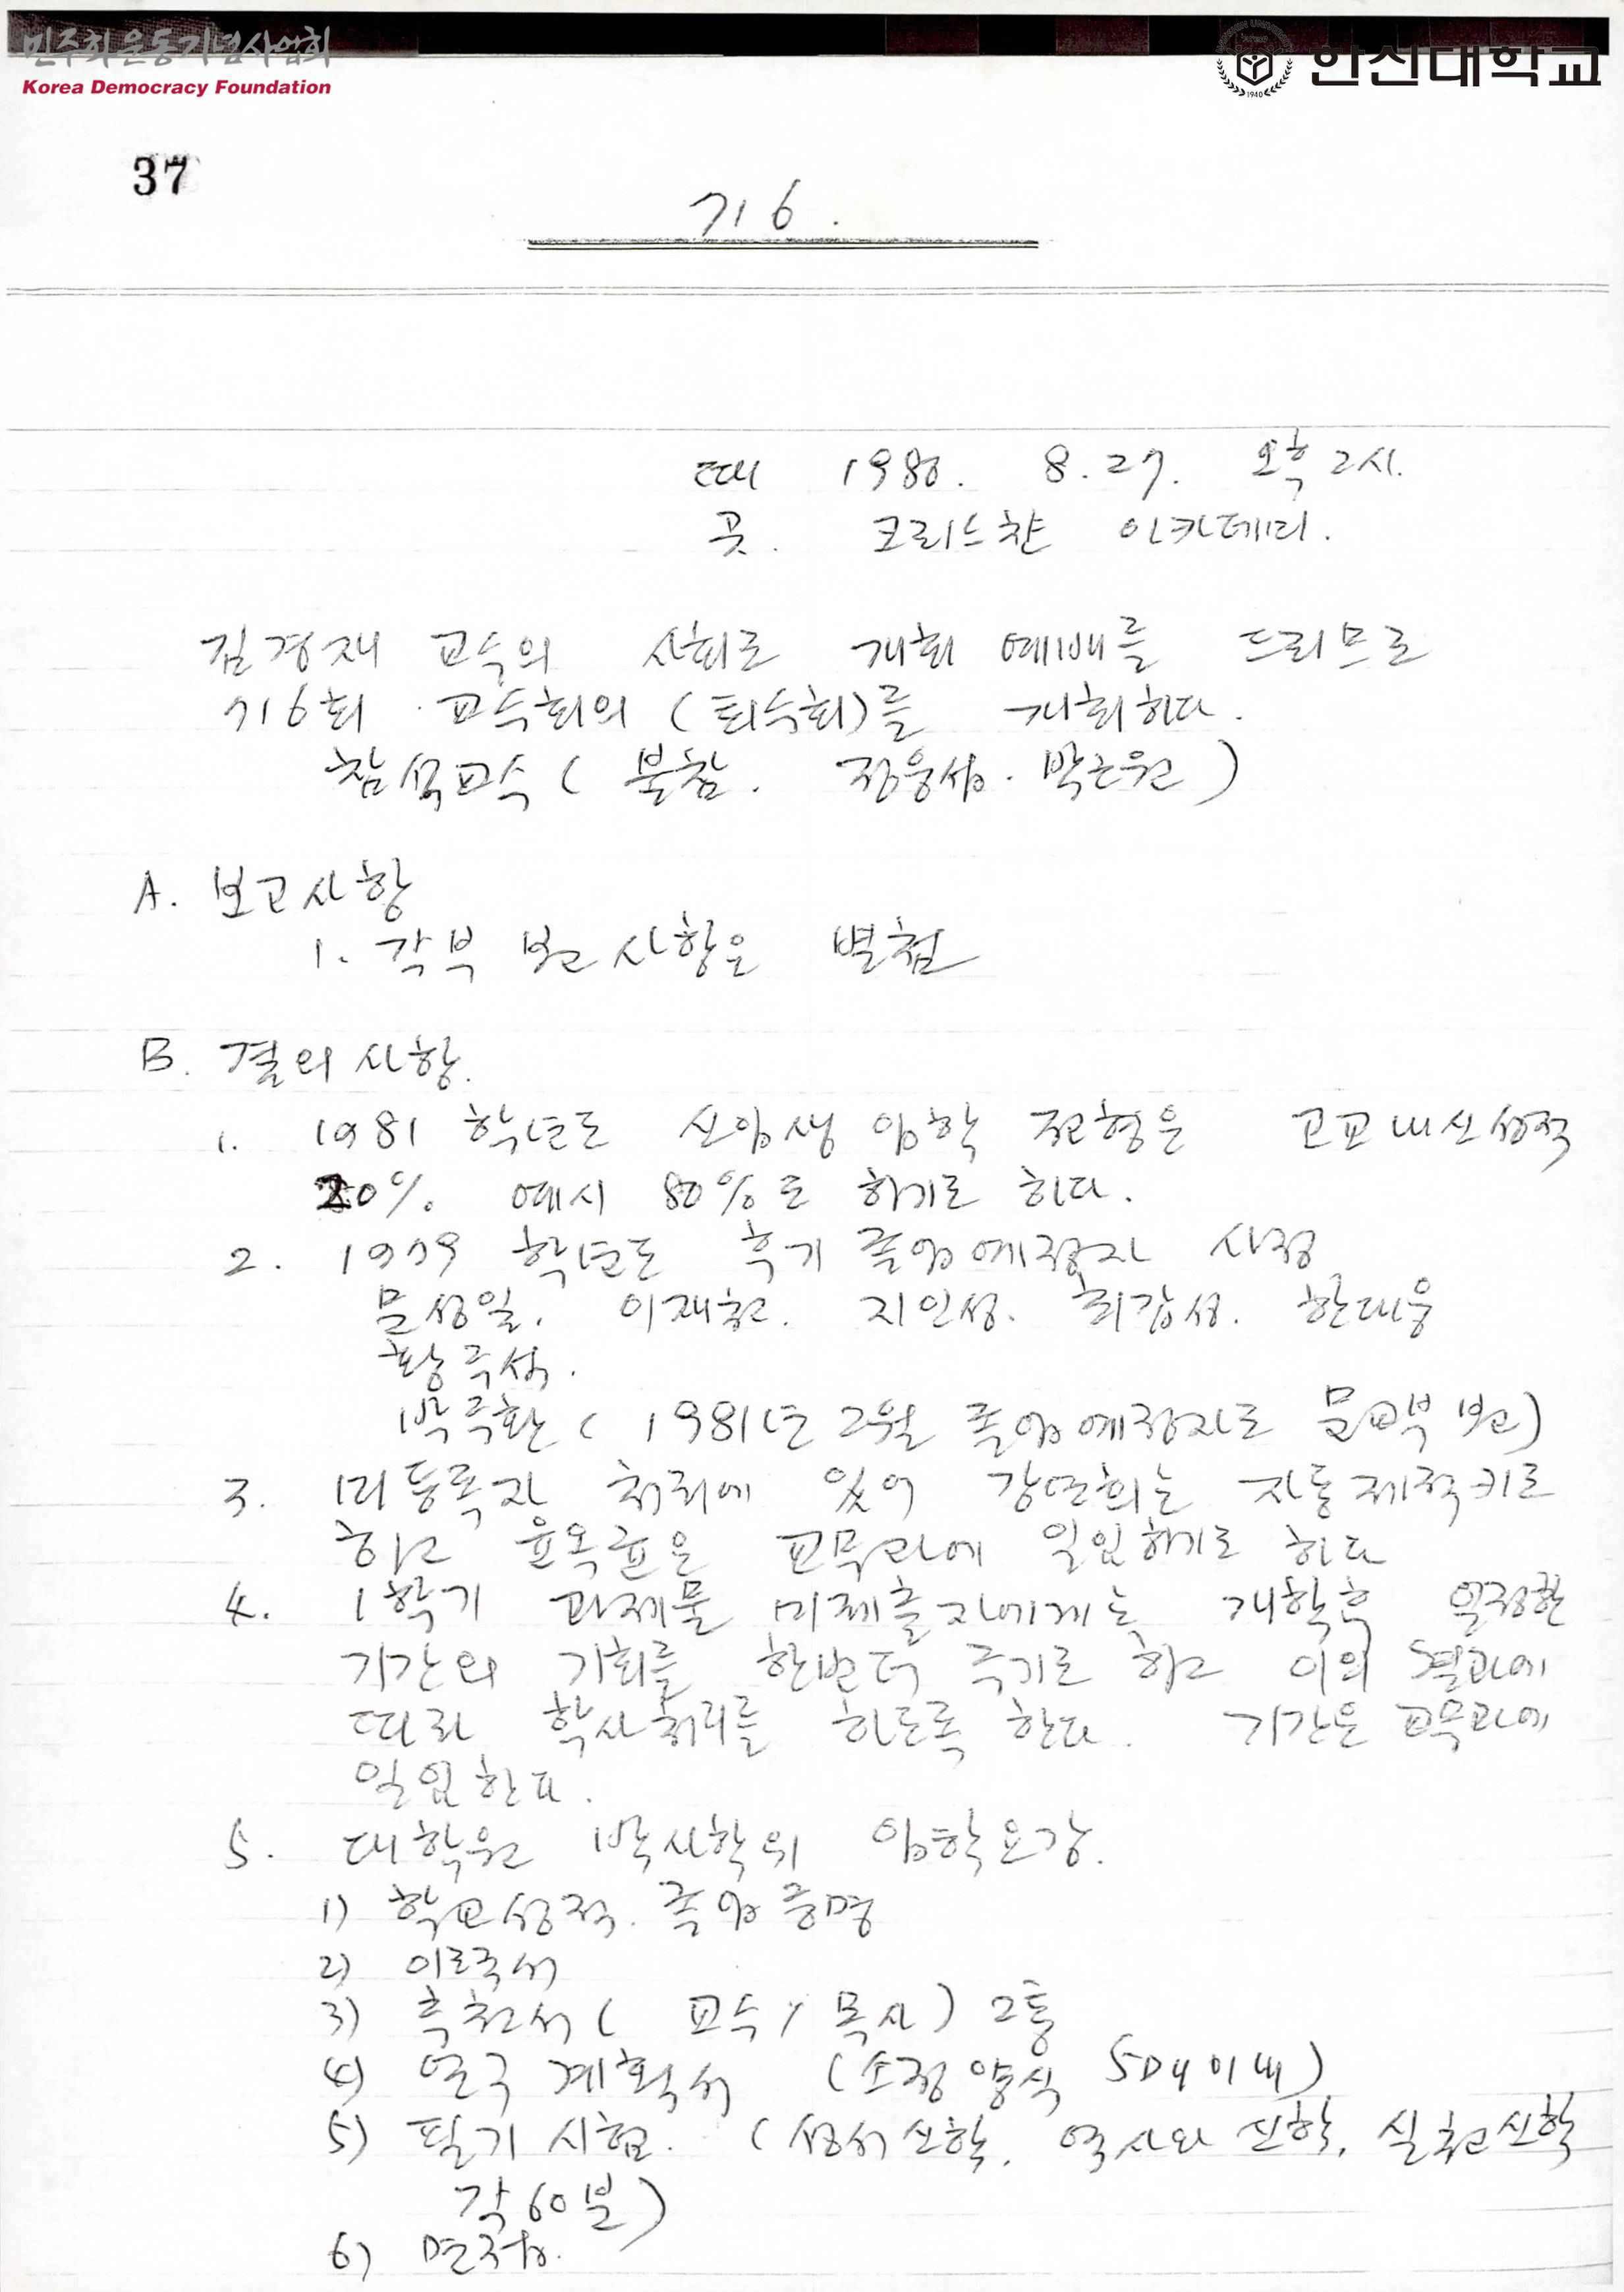 민주화운동기념사업회
Korea Democracy Foundation
1940
한신대학교
37
716.
때 1980. 8. 27. 오후 2시.
곳. 크리스챤 아카데미.
김경재 교수의 사회로 개회 예배를 드리므로
716회 교수회의 (퇴수회)를 개회하다.
참석교수 ( 불참. 정웅섭. 박근원 )
A. 보고사항
1. 각부 보고사항은 별첨
B. 결의사항.
1. 1981 학년도 신입생 입학 전형은 고교내신성적
20% 예시 80%로 하기로 하다.
2. 1979 학년도 후기 졸업예정자 사정
문성일. 이재천. 지인성. 최갑성. 한대웅
황주석.
박륵환 ( 1981년 2월 졸업예정자로 문교부 보고)
3. 미등록자 처리에 있어 강연희는 자동제적키로
하고 윤옥균은 교무과에 일임하기로 하다
4. 1학기 과제물 미제출자에게는 개학후 일정한
기간의 기회를 한번더 주기로 하고 이의 결과에
따라 학사처리를 하도록 한다. 기간은 교무과에
일임한다.
5. 대학원 박사학위 입학요강.
1) 학교성적. 졸업증명
2) 이력서
3) 추천서 ( 교수, 목사 ) 2통
4) 연구 계획서 (소정양식 50매 이내)
5) 필기 시험. (성서신학. 역사와 신학, 실천신학
각 60분)
6) 면접.